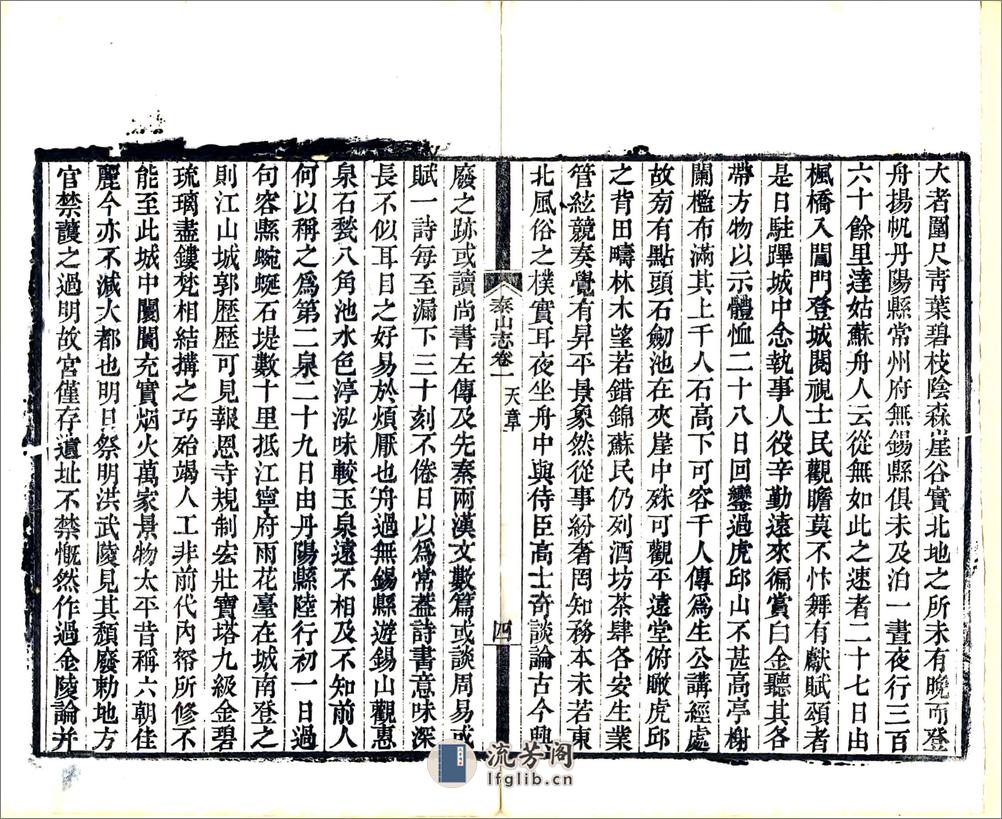 大者圍尺靑葉碧枝陰森崖谷實北地之所未有晚而登
舟揚帆丹陽縣常州府無錫縣俱未及泊一晝夜行三百
六十餘里達姑蘇舟人云從無如此之速者二十七日由
楓橋入閶門登城閱視士民觀瞻莫不忭舞有獻賦頌者
是日駐蹕城中念執事人役辛勤遠來徧賞白金聽其各
帶方物以示體恤二十八日回鑾過虎邱山不甚高亭榭
闌檻布滿其上千人石高下可容千人傳爲生公講經處
故旁有點頭石劒池在夾崖中殊可觀平遠堂俯瞰虎邱
之背田疇林木望若錯錦蘇民仍列酒坊茶肆各安生業
管絃競奏覺有昇平景象然從事紛奢罔知務本未若東
北風俗之樸實耳夜坐舟中與侍臣高士奇談論古今興
泰山志卷一 天章
四
廢之跡或讀尚書左傳及先秦兩漢文數篇或談周易或
賦一詩每至漏下三十刻不倦日以爲常葢詩書意味深
長不似耳目之好易於煩厭也舟過無錫縣遊錫山觀惠
泉石甃八角池水色渟泓味較玉泉遠不相及不知前人
何以稱之爲第二泉二十九日由丹陽縣陸行初一日過
句容縣蜿蜒石堤數十里抵江寧府雨花臺在城南登之
則江山城郭歷歷可見報恩寺規制宏壯寶塔九級金碧
琉璃盡鏤梵相結搆之巧殆竭人工非前代內帑所修不
能至此城中闤闠充實烟火萬家景物太平昔稱六朝佳
麗今亦不減大都也明日祭明洪武陵見其頹廢勅地方
官禁護之過明故宮僅存遺址不禁慨然作過金陵論并
流芳阁
lfglib.cn